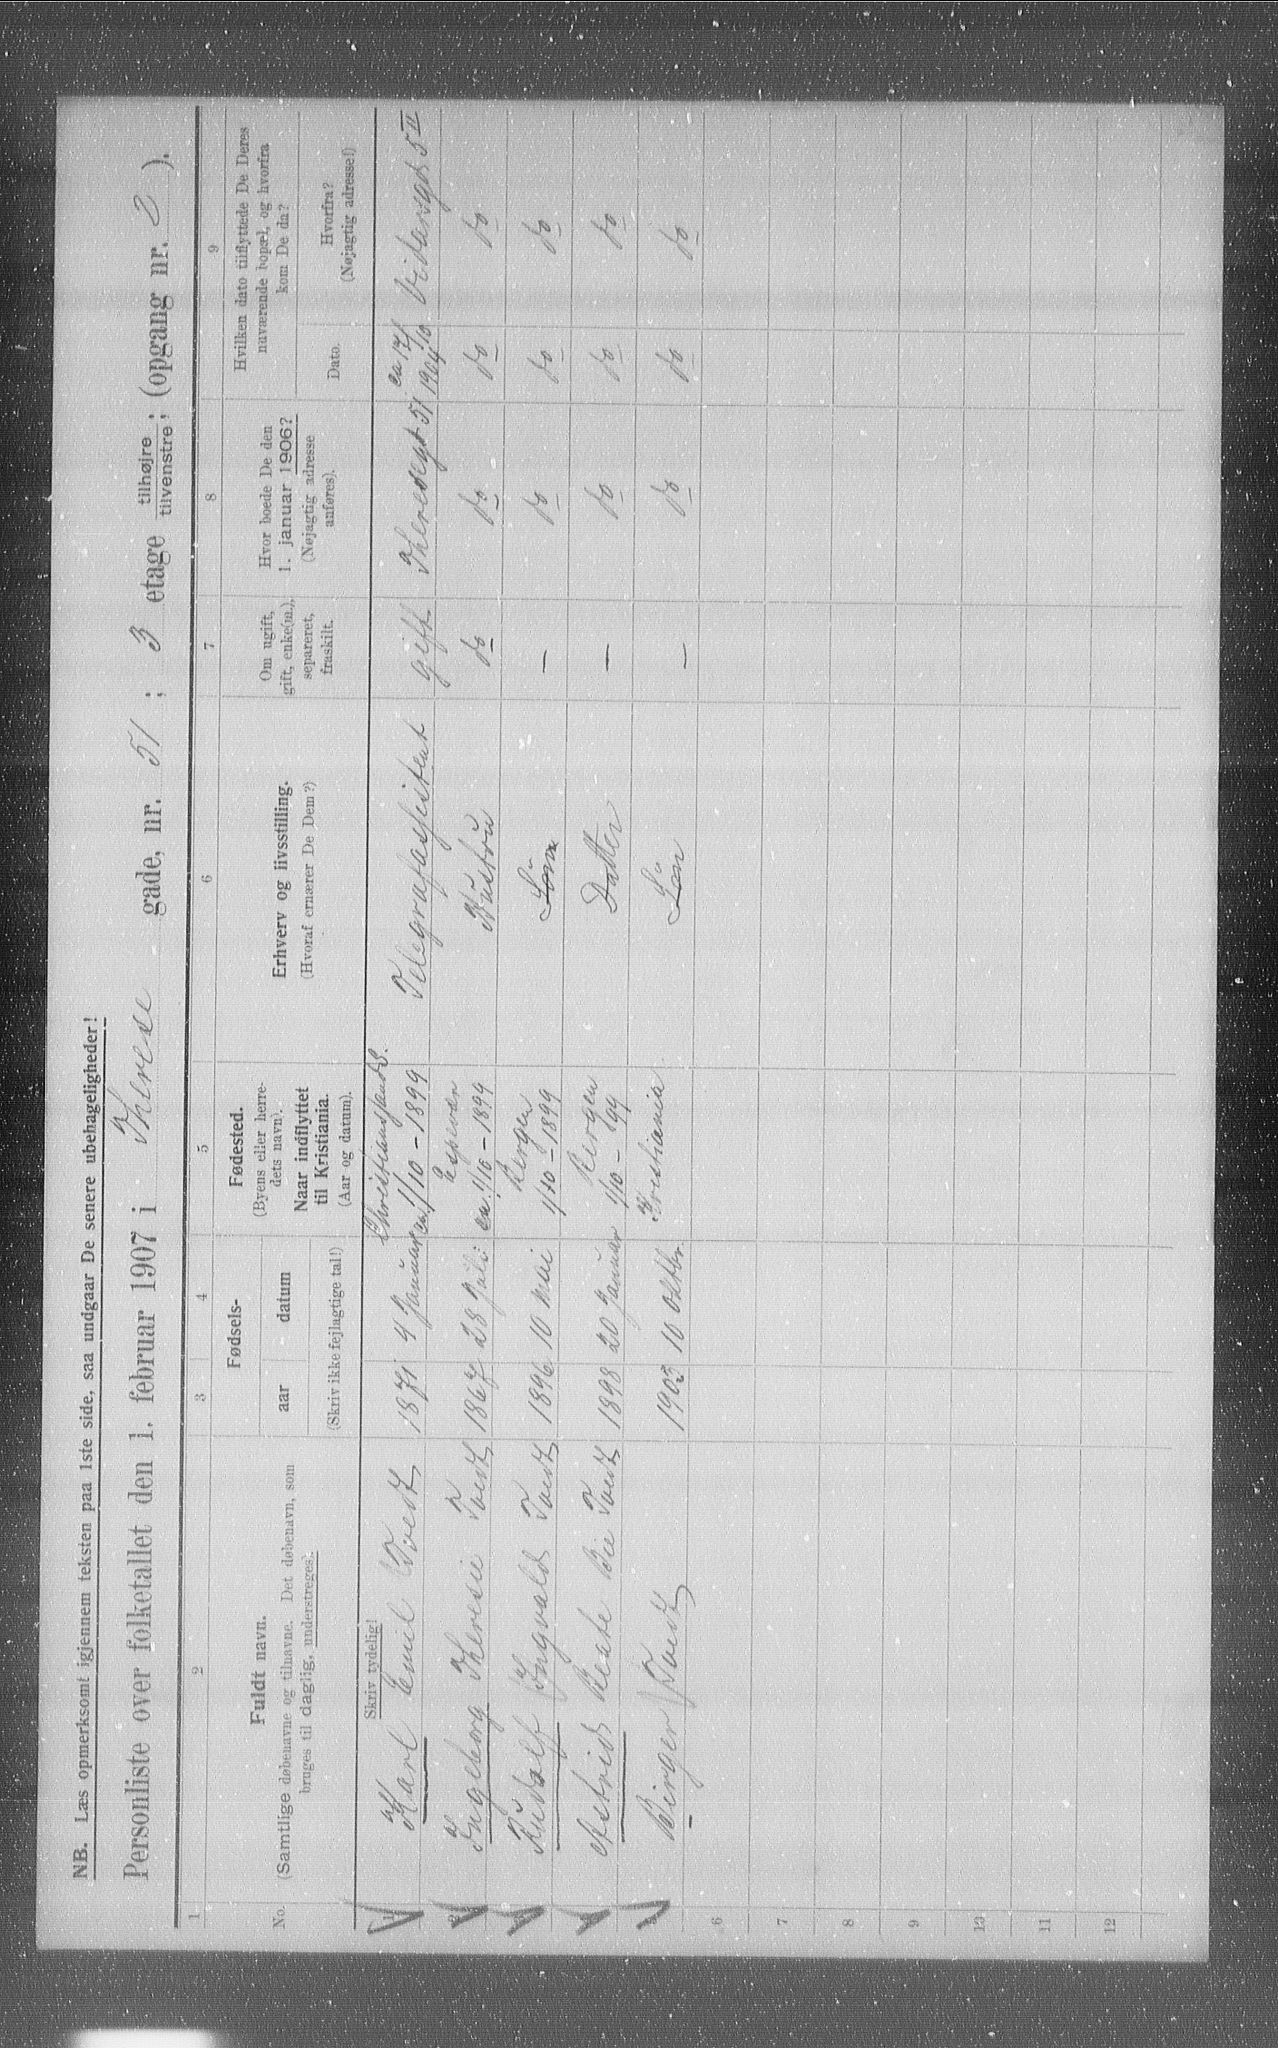 NB. Læs opmerksomt igjennem teksten paa 1ste side, saa undgaar De senere ubehageligheder!
Personliste over folketallet den 1. februar 1907 i Therese gade, nr. 51; 3 etage tilhøjre; tilvenstre; (opgang nr. 2).
1 2 3 4 5 6 7 8 9
No.
Fuldt navn.
(Samtlige døbenavne og tilnavne. Det døbenavn, som
bruges til daglig, understreges).
Fødsels-
aar datum
(Skriv ikke fejlagtige tal!)
Fødested.
(Byens eller herre-
dets navn).
Naar indflyttet
til Kristiania.
(Aar og datum).
Erhverv og livsstilling.
(Hvoraf ernærer De Dem?)
Om ugift,
gift, enke(m.),
separeret,
fraskilt.
Hvor boede De den
1. januar 1906?
(Nøjagtig adresse
anføres).
Hvilken dato tilflyttede De Deres
nuværende bopæl, og hvorfra
kom De da?
Dato.
Hvorfra?
(Nøjagtig adresse!)
Skriv tydelig!
1 Karl Emil Tvedt 1871 4 Januar Christianssands. ca 1/10 - 1899 Telegrafassistent gift Theresegt 51 ca 17/10 1904 Vidarsgd 5 II
2 Ingeborg Theresie Tvedt 1867 28 Juli Espevær ca. 1/10 - 1899 Hustru do do do do
3 Rudolf Ingvald Tvedt 1896 10 Mai Bergen 1/10 - 1899 Søn — do do do
4 Astrid Beate Bie Tvedt 1898 20 Januar Bergen 1/10 - 99 Datter — do do do
5 Birger Tvedt 1903 10 oktbr. Kristiania Søn — do do do
6
7
8
9
10
11
12